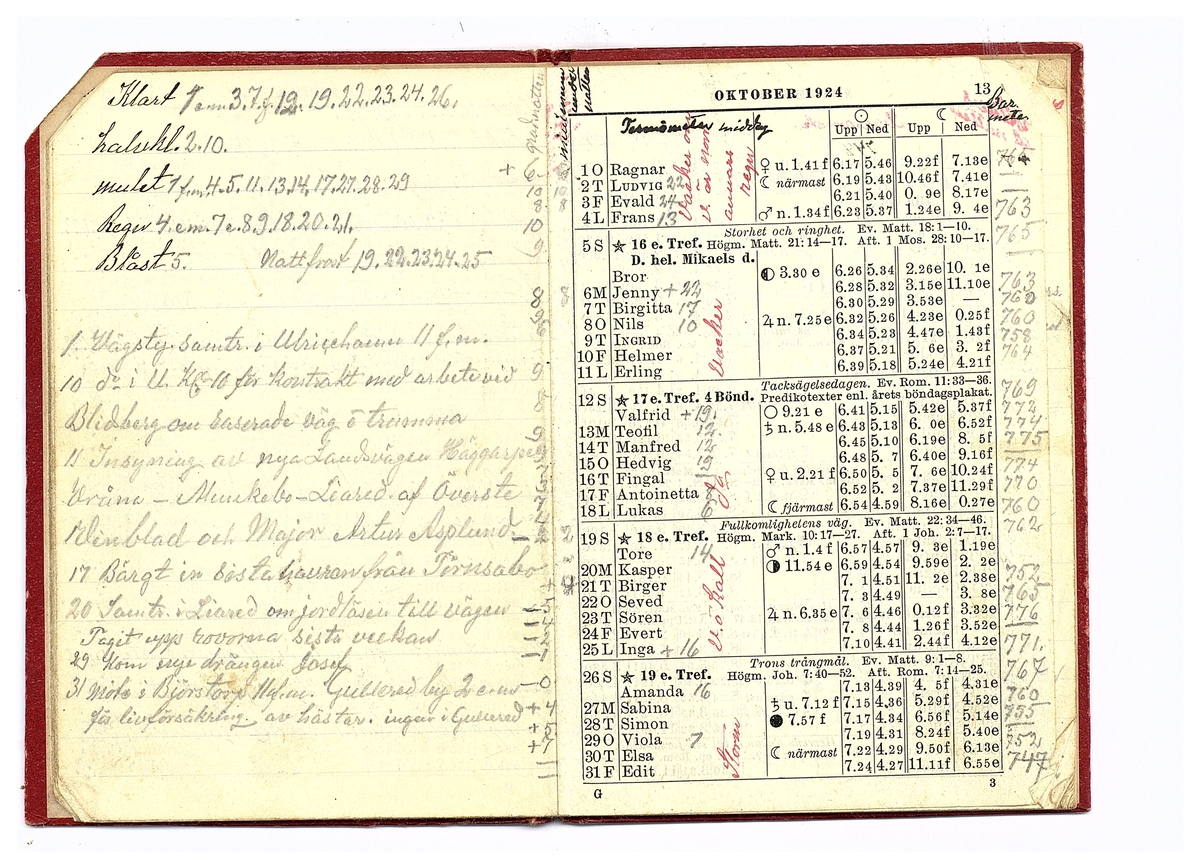 Klart 1 em 3.7 f. 12. 19. 22. 23. 24. 26.
halvkl. 2. 10.
mulet 1 f.m 4. 5. 11. 13. 14. 17. 27. 28. 29
Regn 4. em. 7 e. 8. 9. 18. 20. 21.
Blåst 5. Nattfrost 19. 22. 23. 24. 25
1. Vägsty. samtr. i Ulricehamn 11 f.m.
10 do i U. Kl-10 för kontrakt med arbete vid
Blidberg om baserade väg ö trumma
11 Insyning av nya Landsvägen Häggarp
Vråna - Munkebo - Liared af Överste
Vinblad och Major Artur Asplund
17 Bärgt in sista havran från Törnsabo
20 Samtr. i Liared om jordlösen till vägen
Tagit upp rovorna sista veckan
29 kom nye drängen Josef
31 Möte i Björstorp 11 f.m. Gullered by 2 e.m
för livförsäkring av hästar. ingen i Gullered
OKTOBER 1924 13
Termometer middag
Barmeter
Upp Ned Upp Ned
1 O Ragnar ♀ u. 1.41 f 6.17 5.46 9.22f 7.13e
2 T LUDVIG 22 ☾ närmast 6.19 5.43 10.46f 7.41e
3 F Evald 24 6.21 5.40 0. 9e 8.17e
4 L Frans 13 ♂ n. 1.34 f 6.23 5.37 1.24e 9. 4e 763
Storhet och ringhet. Ev. Matt. 18: 1—10.
5 S ★ 16 e. Tref. Högm. Matt. 21: 14—17. Aft. 1 Mos. 28: 10—17. 765
D. hel. Mikaels d.
Bror ◐ 3.30 e 6.26 5.34 2.26e 10. 1e
6 M Jenny + 22 6.28 5.32 3.15e 11.10e 763
7 T Birgitta 17 6.30 5.29 3.53e — 760
8 O Nils 10 ♃ n. 7.25 e 6.32 5.26 4.23e 0.25f 760
9 T INGRID 6.34 5.23 4.47e 1.43f 758
10 F Helmer 6.37 5.21 5. 6e 3. 2f 764
11 L Erling 6.39 5.18 5.24e 4.21f
vacker
Tacksägelsedagen. Ev. Rom. 11: 33—36. 769
12 S ★ 17 e. Tref. 4 Bönd. Predikotexter enl. årets böndagsplakat.
Valfrid + 19. ○ 9.21 e 6.41 5.15 5.42e 5.37f 772
13 M Teofil 12. ♄ n. 5.48 e 6.43 5.13 6. 0e 6.52f 774
14 T Manfred 12 6.45 5.10 6.19e 8. 5f 775
15 O Hedvig 19 6.48 5. 7 6.40e 9.16f
16 T Fingal ♀ u. 2.21 f 6.50 5. 5 7. 6e 10.24f 774
17 F Antoinetta 6.52 5. 2 7.37e 11.29f 770
18 L Lukas ☾ fjärmast 6.54 4.59 8.16e 0.27e 760
Fullkomlighetens väg. Ev. Matt. 22: 34—46. 762
19 S ★ 18 e. Tref. Högm. Mark. 10: 17—27. Aft. 1 Joh. 2: 7—17.
Tore 14 ♂ n. 1.4 f 6.57 4.57 9. 3e 1.19e
20 M Kasper ◑ 11.54 e 6.59 4.54 9.59e 2. 2e 752
21 T Birger 7. 1 4.51 11. 2e 2.38e 765
22 O Seved 7. 3 4.49 — 3. 8e
23 T Sören ♃ n. 6.35 e 7. 6 4.46 0.12f 3.32e 776
24 F Evert 7. 8 4.44 1.26f 3.52e
25 L Inga + 16 7.10 4.41 2.44f 4.12e 771.
v. ö kall
Trons trångmål. Ev. Matt. 9: 1—8.
26 S ★ 19 e. Tref. Högm. Joh. 7: 40—52. Aft. Rom. 7: 14—25. 767
Amanda 16 7.13 4.39 4. 5f 4.31e
27 M Sabina ♄ u. 7.12 f 7.15 4.36 5.29f 4.52e 760
28 T Simon ● 7.57 f 7.17 4.34 6.56f 5.14e 755
29 O Viola 7 7.19 4.31 8.24f 5.40e
30 T Elsa ☾ närmast 7.22 4.29 9.50f 6.13e 752
31 F Edit 7.24 4.27 11.11f 6.55e 747
Storm
G 3